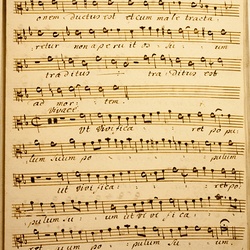 onem ductus est et cum male tracta:
retur non aperuit os su: um
traditus traditus est
ad mor: tem
Vivace
Ut vivifica: ret po pu:
lum suum po: pulum su: um
ut vivifica: ret po:
pulum su: um ut vi vi fi ca: